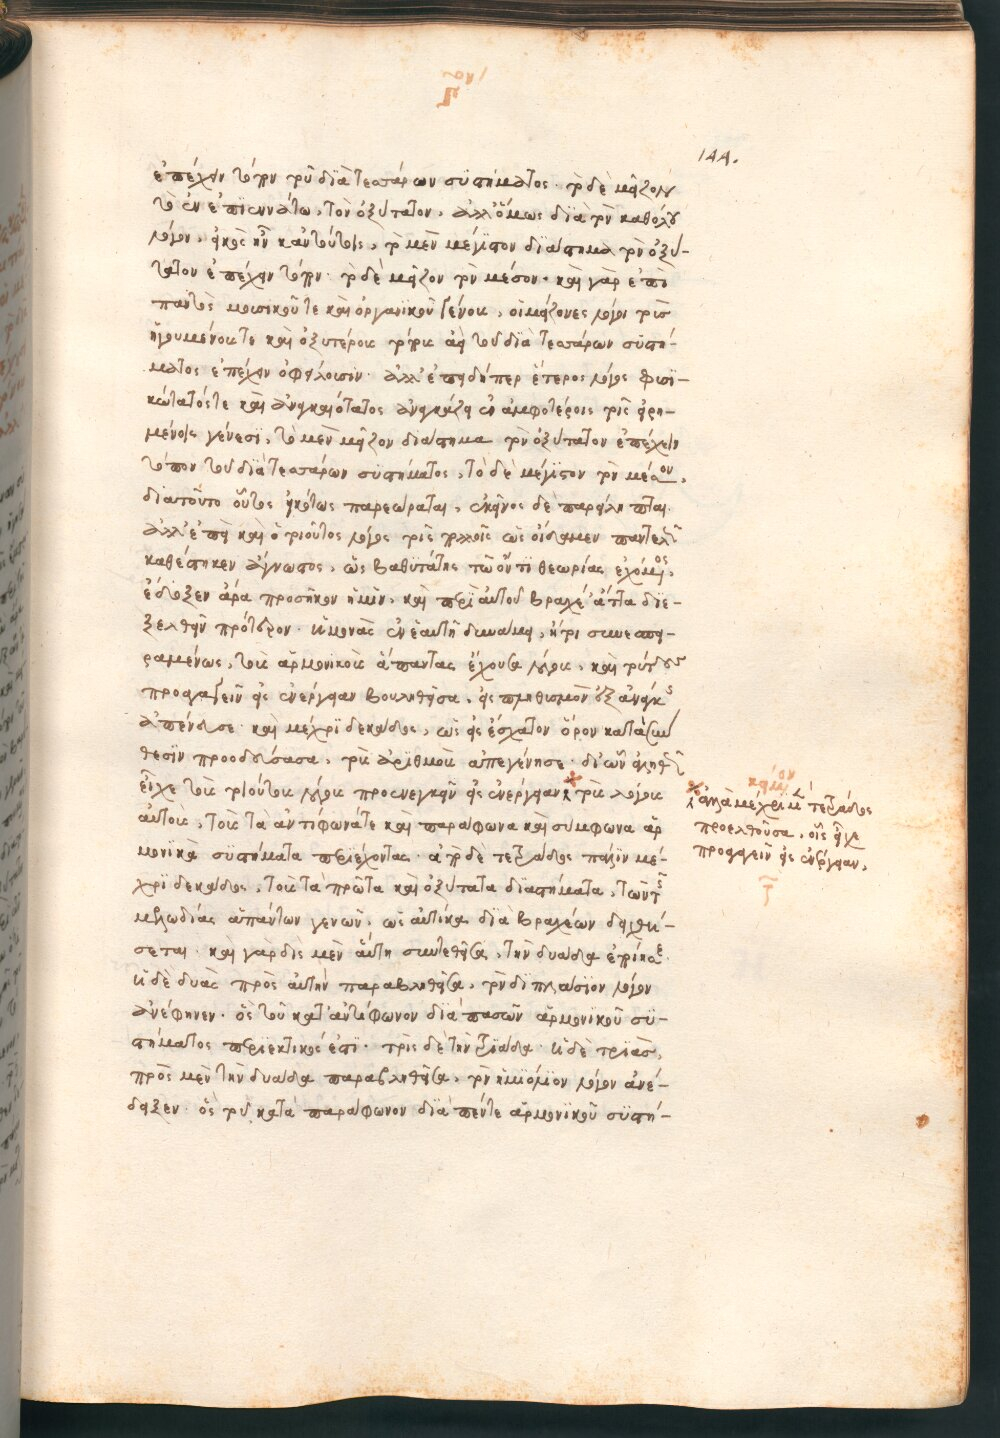 144.
ἐπέχειν τόπον τοῦ διὰ τεσσάρων συστήματος· τὸ δὲ μεῖζον
τὸ ἐν ἐπισυνάτω, τὸν ὀξύτατον. ἀλλ' ὅμως διὰ τὸν καθόλου
λόγον, εἰκὸς ἦν κἀν τούτοις, τὸ μὲν μέγιστον διάστημα τὸν ὀξύ-
τατον ἐπέχειν τόπον· τὸ δὲ μεῖζον τὸν μέσον· καὶ γὰρ ἐπὶ
παντὸς μουσικοῦ τε καὶ ὀργανικοῦ γένους, οἱ μείζονες λόγοι τοὺς
ἡγουμένους τε καὶ ὀξυτέρους τόπους ἀεὶ τοῦ διὰ τεσσάρων συστή-
ματος ἐπέχειν ὀφείλουσιν· ἀλλ' ἐπειδήπερ ἕτερος λόγος φυσι-
κώτατός τε καὶ ἀναγκαιότατος ἀναγκάζει ἐν ἀμφοτέροις τοῖς εἰρη-
μένοις γένεσι, τὸ μὲν μεῖζον διάστημα τὸν ὀξύτατον ἐπέχειν
τόπον τοῦ διὰ τεσσάρων συστήματος, τὸ δὲ μέγιστον τὸν μέσον,
διὰ τοῦτο οὗτος εἰκότως παρεώραται, ἐκεῖνος δὲ παρείληπται·
ἀλλ' ἐπεὶ καὶ ὁ τοιοῦτος λόγος τοῖς πολλοῖς ὡς οἴδαμεν παντελῶς
καθέστηκεν ἄγνωστος, ὡς βαθυτάτης τῷ ὄντι θεωρίας ἐχόμενος,
ἔδοξεν ἄρα προσῆκον ἡμῖν, καὶ περὶ αὐτοῦ βραχέ' ἄττα διε-
ξελθεῖν πρότερον· ἡ μονὰς ἐν ἑαυτῇ δυνάμει, ἤτοι συνεσπει-
ραμένως, τοὺς ἁρμονικοὺς ἅπαντας ἔχουσα λόγους, καὶ τούτους
προαγαγεῖν εἰς ἐνέργειαν βουληθεῖσα, εἰς πληθισμὸν ἐξ ἀνάγκης
ἀπένευσε· καὶ μέχρι δεκάδος, ὡς εἰς ἔσχατον ὅρον κατὰ σύν
θεσιν προοδεύσασα, τοὺς ἀριθμοὺς ἀπεγέννησε· δι' ὧν
εἶχε τοὺς τοιούτους λόγους προενεγκεῖν εἰς ἐνέργειαν τοὺς λόγους
αὐτούς, τοὺς τὰ ἀντίφωνά τε καὶ παράφωνα καὶ σύμφωνα ἁρ
μονικὰ συστήματα περιέχοντας· ἀπὸ δὲ τετράδος πάλιν μέ-
χρι δεκάδος, τοὺς τὰ πρῶτα καὶ ὀξύτατα διαστήματα, τῶν τῆς
μελῳδίας ἁπάντων γενῶν, ὡς αὐτίκα διὰ βραχέων δειχθή-
σεται· καὶ γὰρ δὶς μὲν αὕτη συντεθεῖσα, τὴν δυάδα ἐποίησε·
ἡ δὲ δυὰς πρὸς αὐτὴν παραβληθεῖσα, τὸν διπλάσιον λόγον
ἀνέφηνεν· ὃς τοῦ κατ' ἀντίφωνον διὰ πασῶν ἁρμονικοῦ συ-
στήματος περιεκτικός ἐστι· τρὶς δὲ τὴν τριάδα· ἡ δὲ τριὰς,
πρὸς μὲν τὴν δυάδα παραβληθεῖσα, τὸν ἡμιόλιον λόγον ἀνέ-
δειξεν· ὃς τοῦ κατὰ παράφωνον διὰ πέντε ἁρμονικοῦ συστή-
κείμενον
ἀπὸ μὲν μέχρι τετράδος
προελθοῦσα, οἷς εἶχε
προαγαγεῖν εἰς ἐνέργειαν.